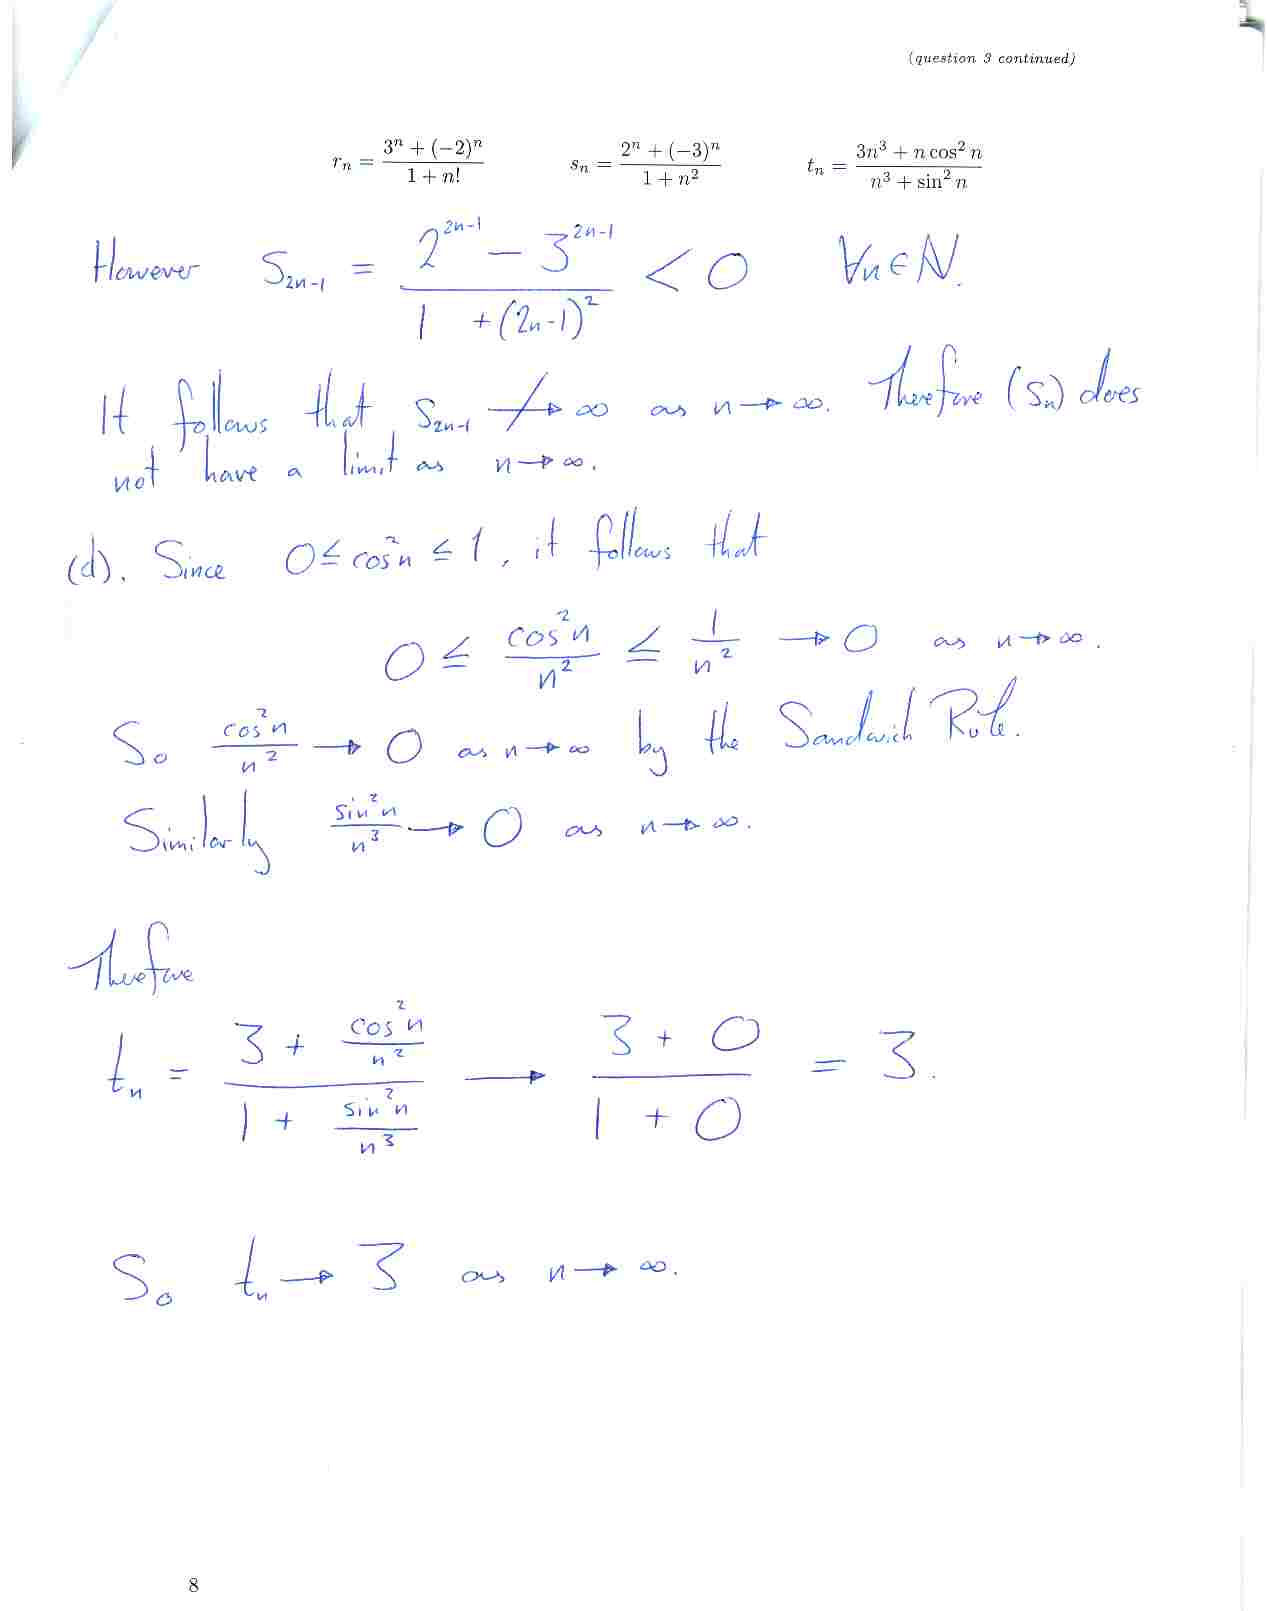 (question 3 continued)
rₙ = (3ⁿ + (−2)ⁿ)/(1 + n!)    sₙ = (2ⁿ + (−3)ⁿ)/(1 + n²)    tₙ = (3n³ + n cos² n)/(n³ + sin² n)
However S₂ₙ₋₁ = (2²ⁿ⁻¹ − 3²ⁿ⁻¹)/(1 + (2n-1)²) < 0 ∀n∈ℕ.
It follows that S₂ₙ₋₁ ↛ ∞ as n → ∞. Therefore (Sₙ) does
not have a limit as n → ∞.
(d). Since 0 ≤ cos²n ≤ 1, it follows that
0 ≤ cos²n/n² ≤ 1/n² → 0 as n → ∞.
So cos²n/n² → 0 as n → ∞ by the Sandwich Rule.
Similarly sin²n/n³ → 0 as n → ∞.
Therefore
tₙ = (3 + cos²n/n²)/(1 + sin²n/n³) → (3 + 0)/(1 + 0) = 3.
So tₙ → 3 as n → ∞.
8